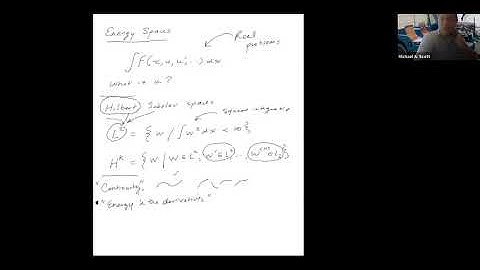 Energy Spaces
Real
problems
∫F(x, u, u', ...) dx
What is u?
Hilbert Sobolev spaces
Square integrable
L² = {w | ∫ w² dx < ∞}
Hᵏ = {w | w ∈ L², w' ∈ L², ... w⁽ᵏ⁾ ∈ L²}
"Continuity"
"Energy in the derivatives"
Michael A. Scott